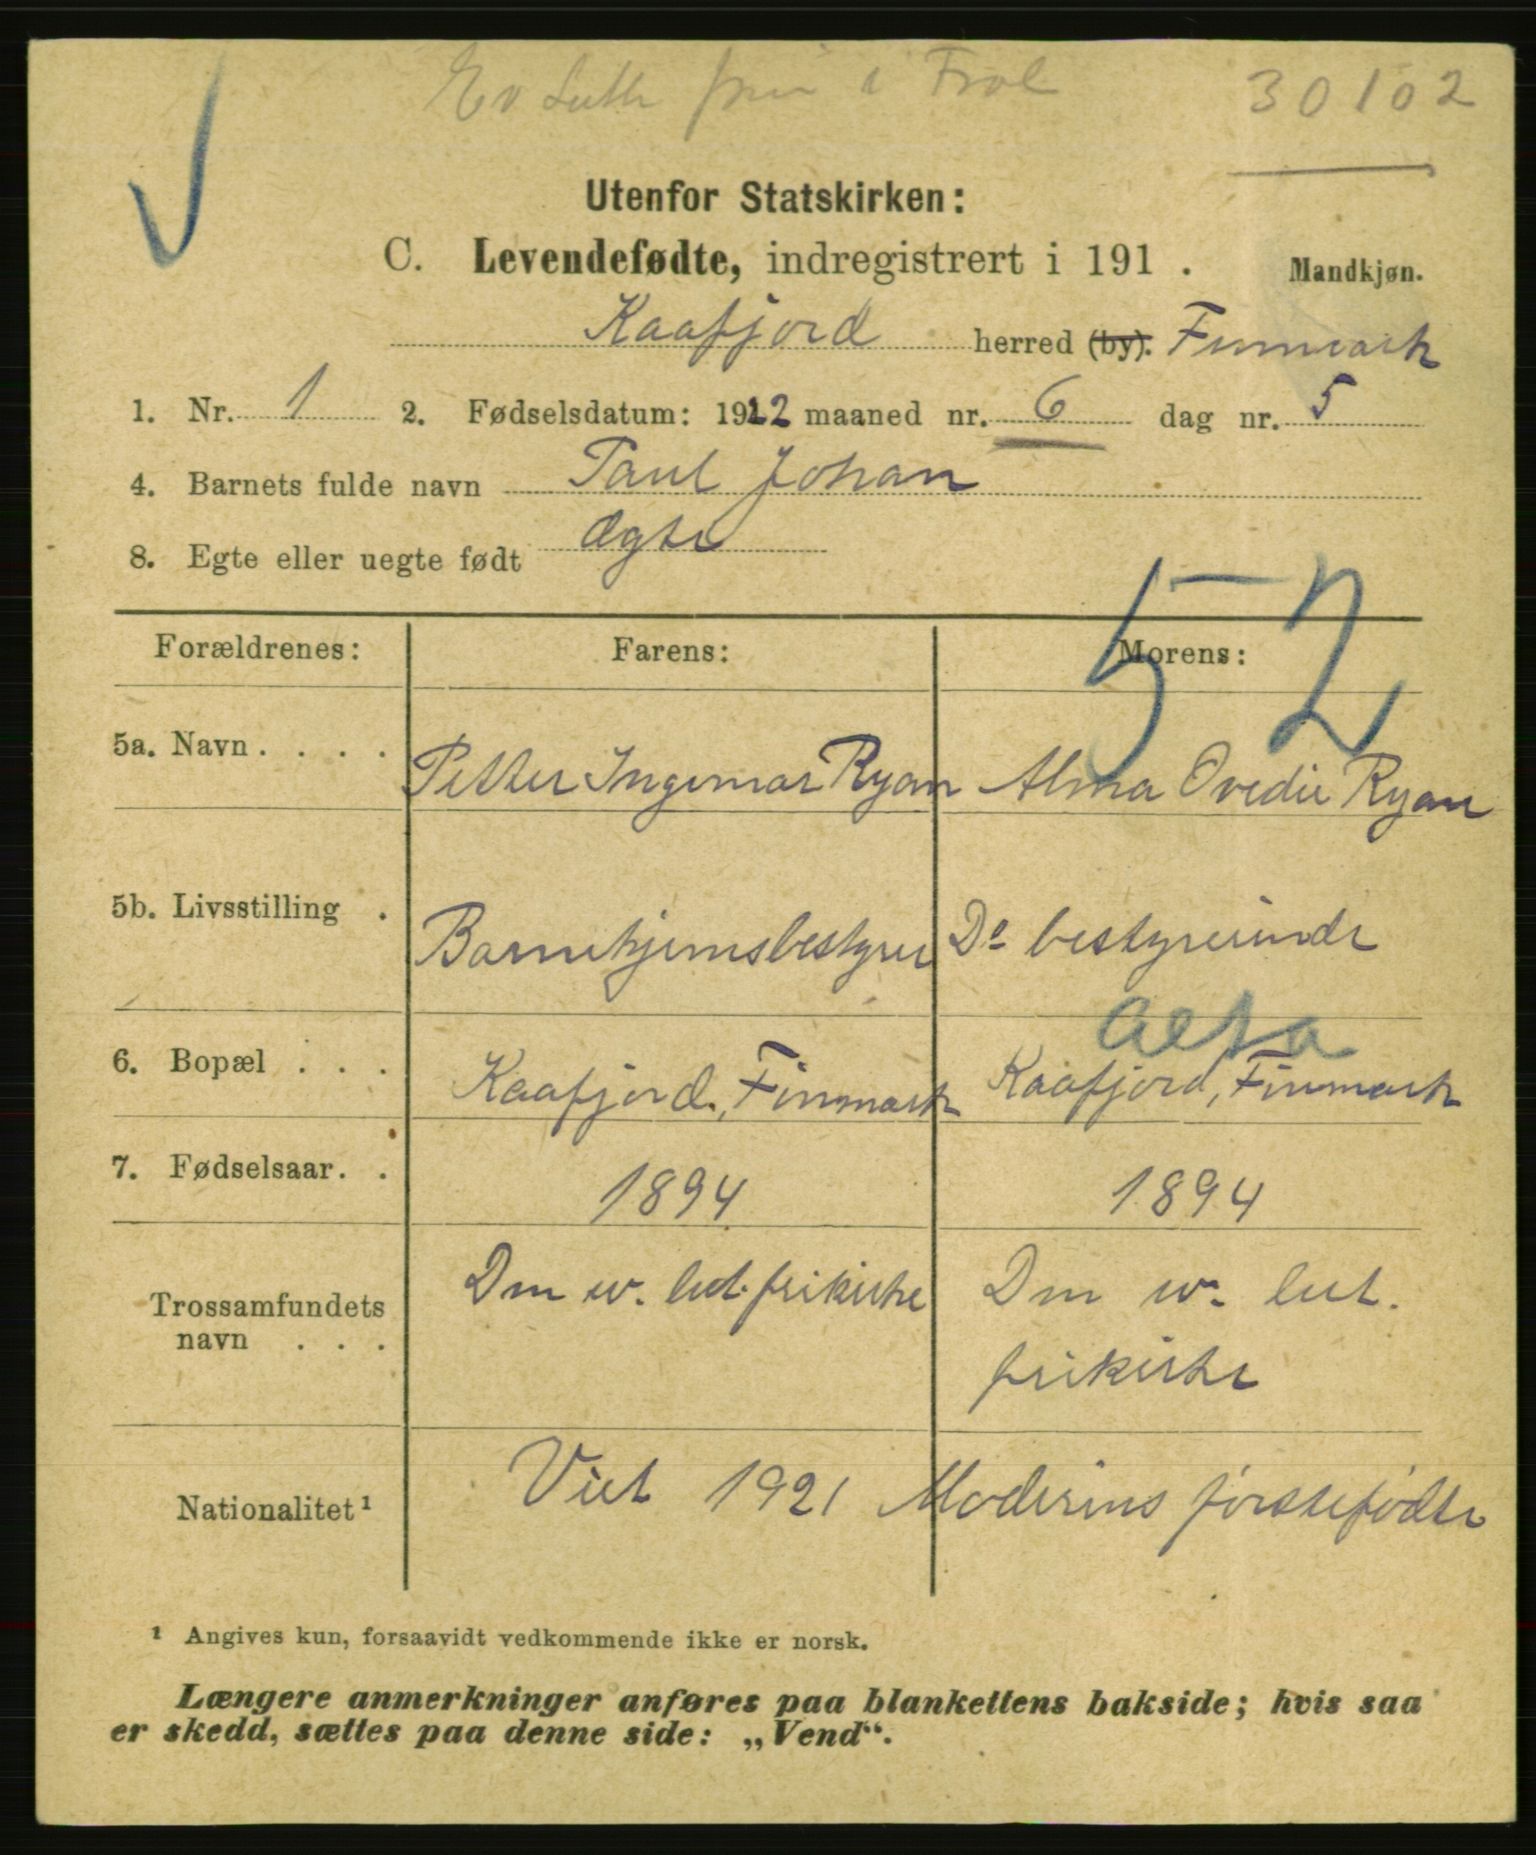 Ev Luth fri i Frol 30102
Utenfor Statskirken:
C. Levendefødte, indregistrert i 191 . Mandkjøn.
Kaafjord herred (by). Finmark
1. Nr. 1 2. Fødselsdatum: 1922 maaned nr. 6 dag nr. 5
4. Barnets fulde navn Paul Johan
8. Egte eller uegte født Ægte
52
Forældrenes: Farens: Morens:
5a. Navn . . . . Petter Ingemar Ryan Alma Ovedie Ryan
5b. Livsstilling . Barnehjemsbestyrer Do bestyrerinde
Alta
6. Bopæl . . . Kaafjord, Finmark Kaafjord, Finmark
7. Fødselsaar. . 1894 1894
Trossamfundets navn . . . Den ev. lut. frikirke Den ev. lut. frikirke
Nationalitet¹ Viet 1921 Moderens førstefødte
¹ Angives kun, forsaavidt vedkommende ikke er norsk.
Længere anmerkninger anføres paa blankettens bakside; hvis saa
er skedd, sættes paa denne side: „Vend“.